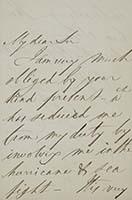 My dear Sir
I am very much
obliged by your
kind present - it
has seduced me
from my duty by
involving me in the
hurricane & sea
fight - It is very